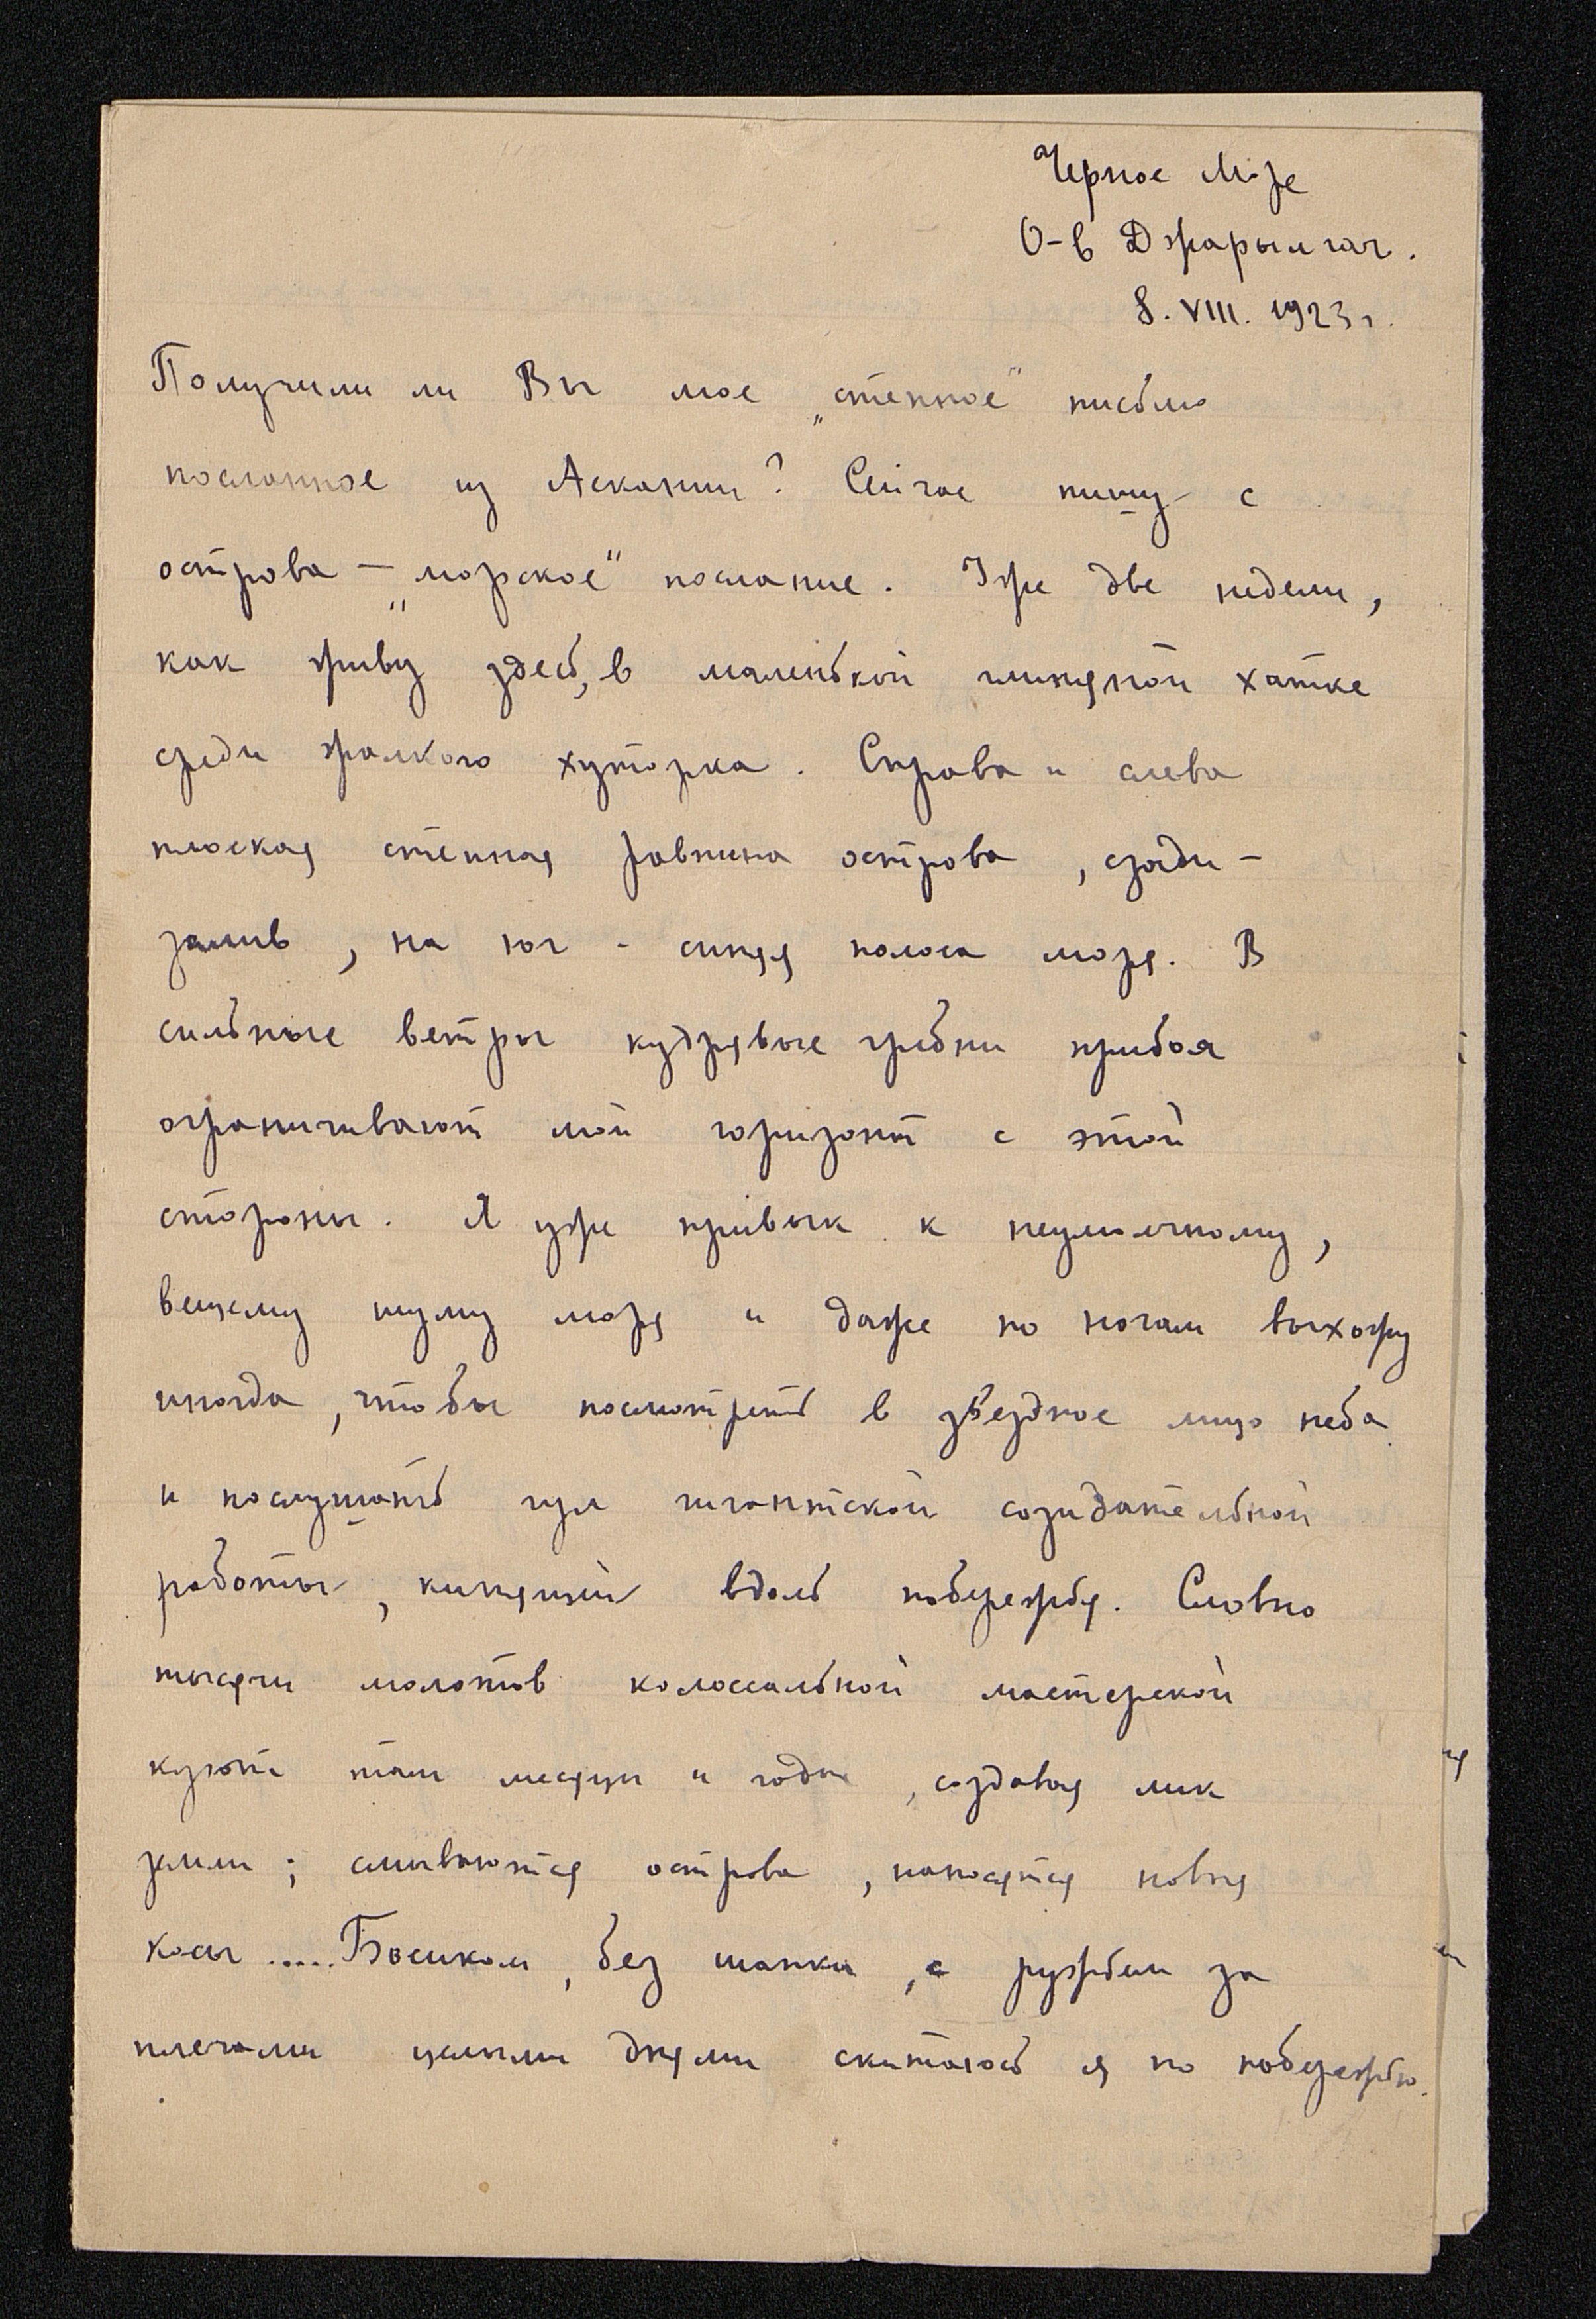 Черное Море
О-в Джарылгач.
8. VIII. 1923 г.
Получили ли Вы мое „степное" письмо
посланное из Аскании? Сейчас пишу с
острова — „морское" послание. Уже две недели,
как живу здесь, в маленькой глиняной хатке
среди жалкого хуторка. Справа и слева
плоская степная равнина острова, сзади —
залив, на юг - синяя полоса моря. В
сильные ветры кудрявые гребни прибоя
ограничивают мой горизонт с этой
стороны. Я уже привык к неумолчному,
вещему шуму моря и даже по ночам выхожу
иногда, чтобы посмотреть в звездное лицо неба
и послушать гул гигантской созидательной
работы, кипящей вдоль побережья. Словно
тысячи молотов колоссальной мастерской
куют там месяцы и годы, создавая лик
земли; смываются острова, наносятся новые
косы ..... Босиком, без шапки, с ружьем за
плечами целыми днями скитаюсь я по побережью.